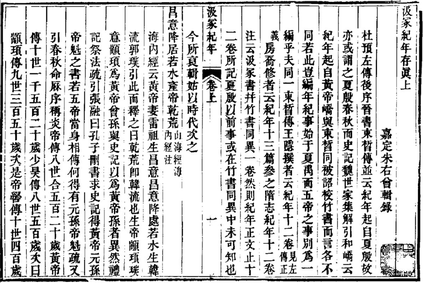 汲冢紀年存眞上
嘉定朱右曾輯錄
杜預左傳後序晉書束晳傳並云紀年起自夏殷故
亦或謂之夏殷春秋而史記魏世家集解引和嶠云
紀年起自黃帝嶠與束晳同被詔校竹書而言各不
同若此豈編年紀事始于夏禹而五帝之事別爲一
編乎夫同一束晳傳王隱撰者云紀年十二卷
義房喬修者云紀年十三篇叅之隋志紀年十二卷
注云汲冢書并竹書同異一卷然則紀年正文止十
二卷所記夏殷以前事或在竹書同異中未可知也
汲冢紀年
卷上
一
今所裒輯姑以時代次之
昌意降居若水產帝乾荒
海內經云黃帝妻雷祖生昌意昌意降處若水生韓
流郭璞引此而釋之曰乾荒卽韓流也生帝顓頊案
意顓頊爲黃帝曾孫與史記以爲黃帝孫者異然禮
記祭法疏引張融曰孔子刪書求史記得黃帝元孫
帝魁之書若五帝當身相傳何得有元孫帝魁疏又
引春秋命厤序稱炎帝傳八世合五百二十歲黃帝
傳十世一千五百二十歲少昊傳八世五百歲次曰
顓頊傳九世三百五十歲次是帝嚳傳十世四百歲